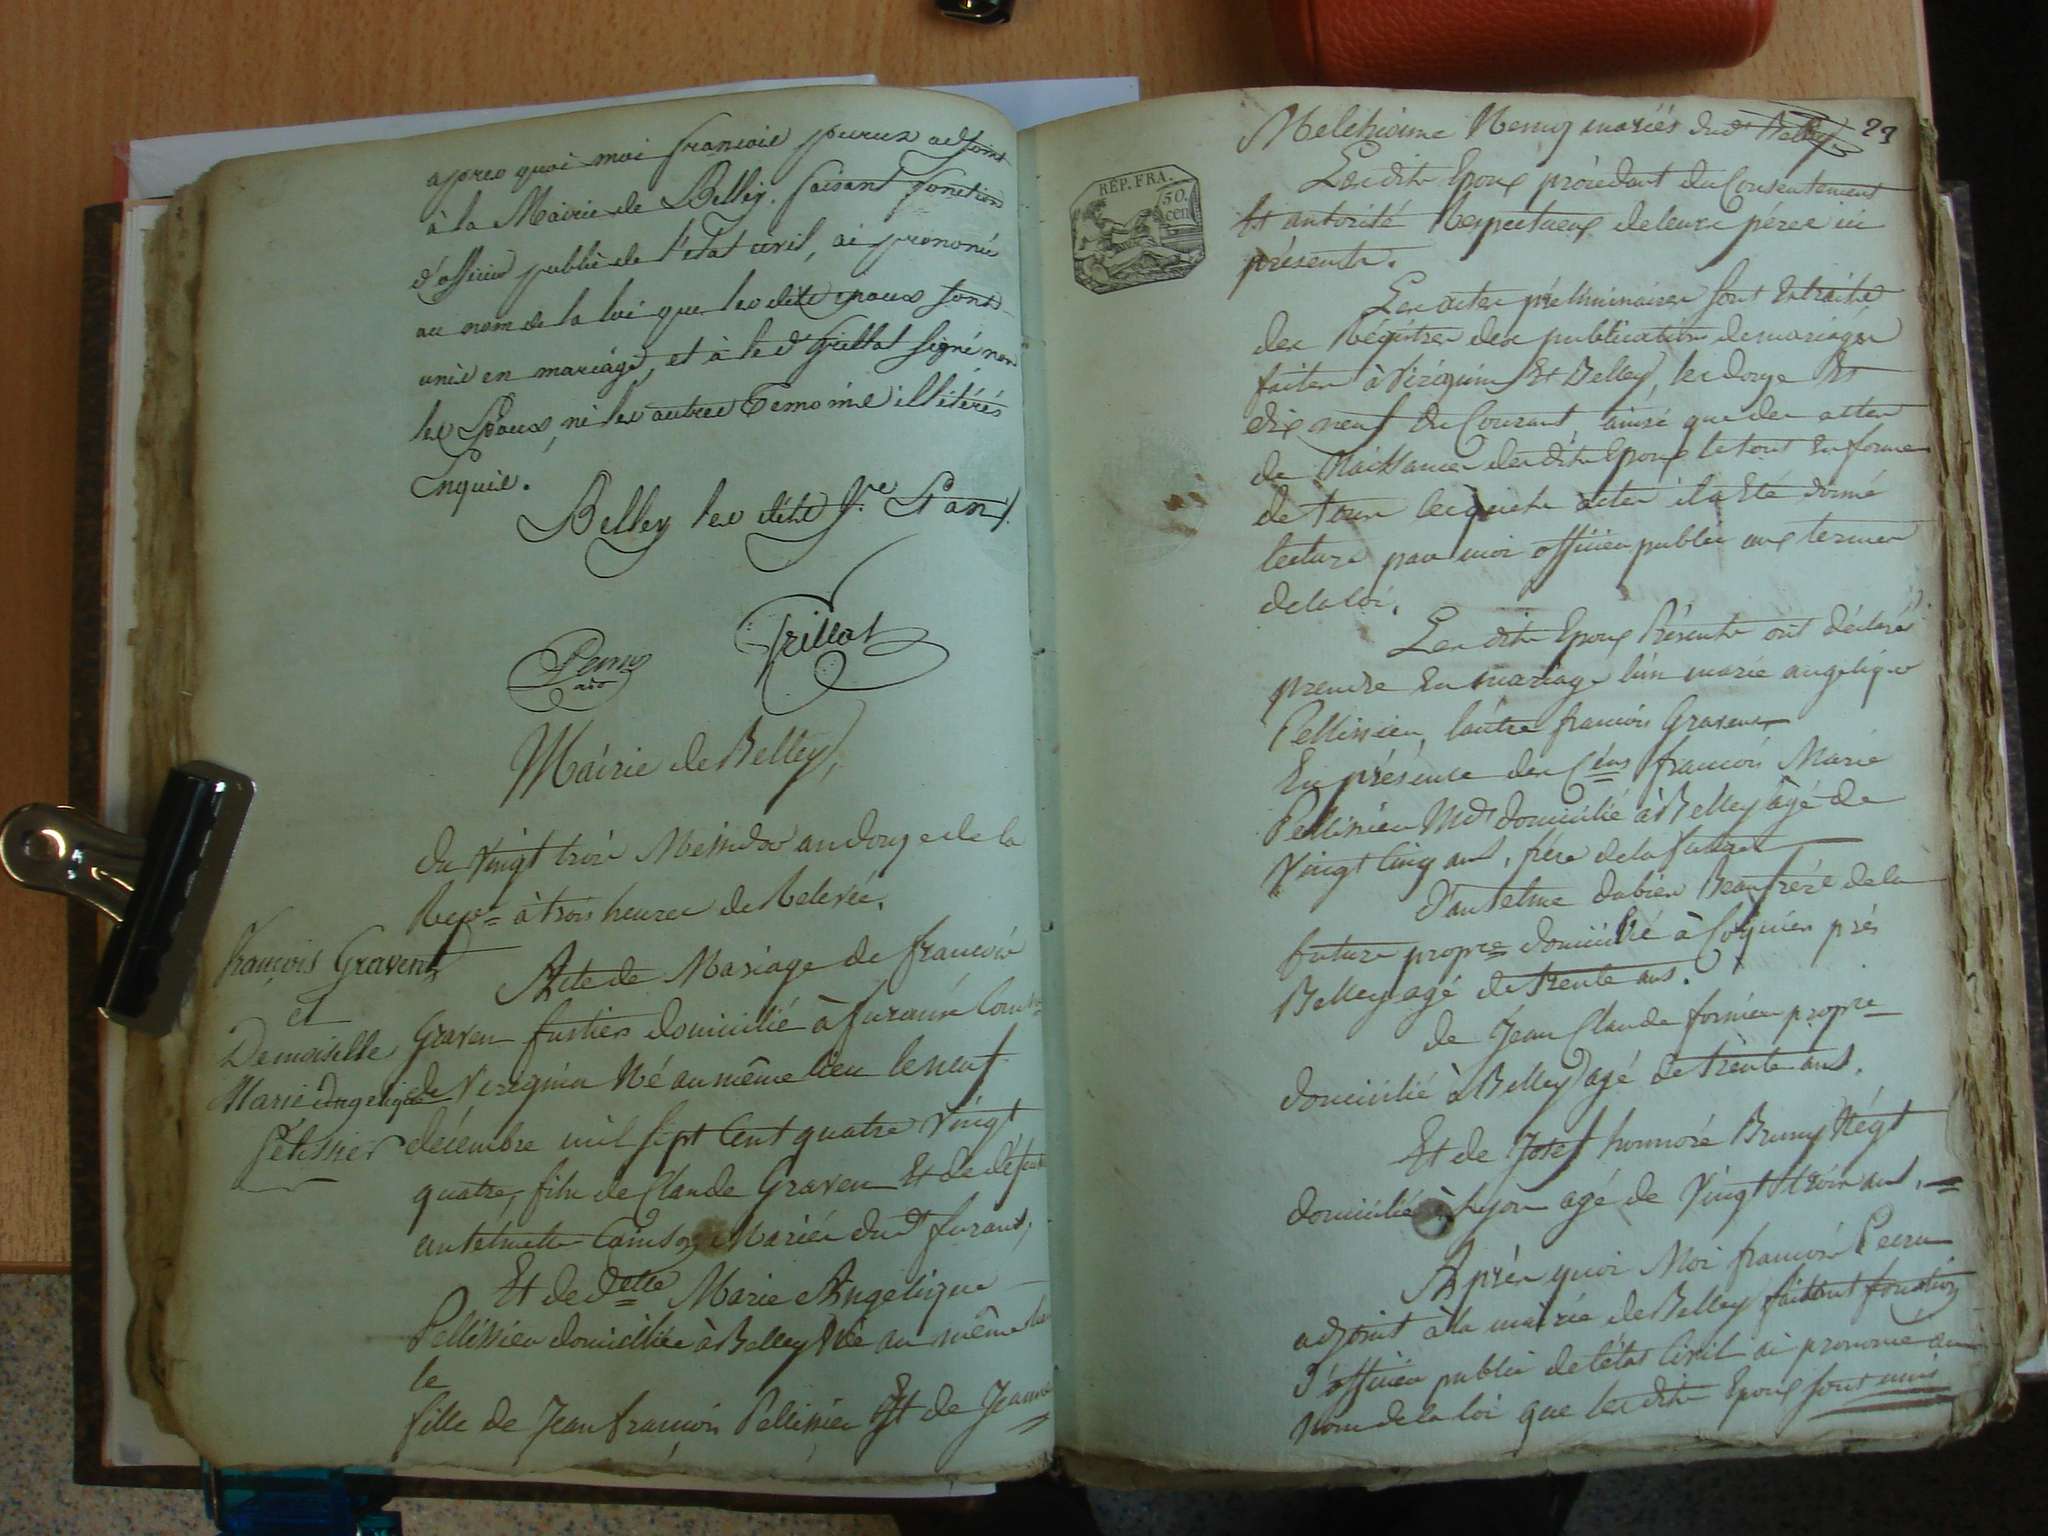 apres quoi moi francois peruz adjoint
à la Mairie de Belley, faisant fonction
d'officier public de l'état civil, ai prononcé
au nom de la loi que les dits epoux sont
unis en mariage, et à le dt Trillat signé non
les Epoux, ni les autres temoins illitérés
Enquis.
Belley les dits Jr. et an/.
Trillat
Mairie de Belley,
du Vingt trois Messidor an douze de la
Repe. à trois heures de Relevée.
François Graven
et
Demoiselle
Marie Angelique
Pelissier
Acte de Mariage de francois
Graven fustier domicilié à furans Comne
de Virignin Né au même lieu le neuf
décembre mil sept Cent quatre Vingt
quatre, fils de Claude Graven Et de défunte
antelmette Mariés dudt furans,
Et de delle Marie Angelique
Pellissier domiciliée à Belley Née au même lieu
le
fille de Jean francois Pellissier Et de Jeanne
29
Melchionne mariés dudt Belley
Lesdits Epoux procédant du Consentement
Et autorité Respectueux de leurs péres ici
présents.
Les actes préliminaires sont Extraits
des Régistres des publications de mariages
faites à Virignin Et Belley, les douze Et
dix neuf du Courant, ainsi que des actes
de Naissances desdits Epoux le tout En forme
de tous lesquels actes il a Eté donné
lecture par moi officier public aux termes
de la loi.
Lesdits Epoux Présents ont déclaré
prendre En mariage l'un marie angelique
Pellissier, l'autre francois Graven
En présence des Cens francois Marie
Pellissier Md domicilié à Belley agé de
Vingt Cinq ans, frére de la future
d'antelme dubien Beaufrére de la
future propre domicilié à Coignin prés
Belley agé de trente ans.
de Jean Claude fornier propre
domicilié à Belley agé de trente ans.
Et de Josef honnoré Bruny Négt
domicilié à Lyon agé de Vingt trois ans.
Aprés quoi Moi francois Peruz
adjoint à la mairie de Belley faisant fonction
d'officier public de l'état Civil ai prononcé au
Nom de la loi que lesdits Epoux sont unis
RÉP. FRA.
50.
cen